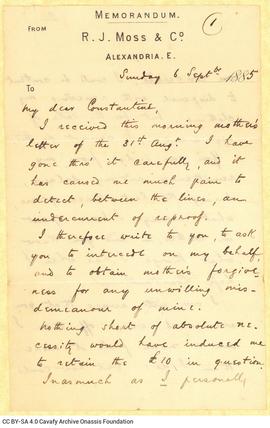 MEMORANDUM.
1
FROM
R. J. MOSS & Co
ALEXANDRIA. E.
Sunday 6 Septber 1885
To
My dear Constantine,
I received this morning mother's
letter of the 31st Augt. I have
gone thro' it carefully, and it
has caused me much pain to
detect, between the lines, an
undercurrent of reproof.
I therefore write to you, to ask
you to intercede on my behalf
and to obtain mother's forgive-
ness for any unwilling mis-
demeanour of mine.
Nothing short of absolute ne-
cessity would have induced me
to retain the £10 in question.
Inasmuch as I personally
CC BY-SA 4.0 Cavafy Archive Onassis Foundation